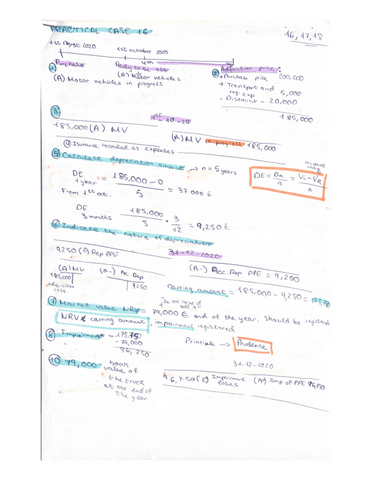 PRACTICAL CASE 16
16, 17, 18
1st August 2020
1st october 2020
Purchase
Ready to use
Adquisition price:
(A) Motor vehicles in progress
(A) Motor vehicles
Purchase price 200,000
+ Transport and 5,000
reg. exp
- Discount - 20,000
185,000
3.
1st-10-10
185,000 (A) MV
(A) MV in progress 185,000
Insurance recorded as expenses
Calculate depreciation amount → n = 5 years
DE 1 year = 185,000 - 0 / 5 = 37 000 €
From 1st oct.
DE = DA / n = VC - VR / n
DE 3 months 185,000 / 5 · 3 / 12 = 9,250 €
6. Indicate the nature of depreciation
31-12-2020
9250 (E) Dep PPE
(A-) Acc. Dep PPE = 9,250
(A) MV
(A-) Ac. Dep
185,000
9250
Carrying amount = 185,000 - 9,250 =
7. Market value NRV = 79,000 € end of the year. Should be registered
NRV < carrying amount, impairment registered
8. Impairment
- 79,000
96,750
Principle → Prudence
10. 79,000
book value of the truck at the end of the year
31-12-2020
96,750 (E) Impairment losses
(A-) Imp of PPE 96,750